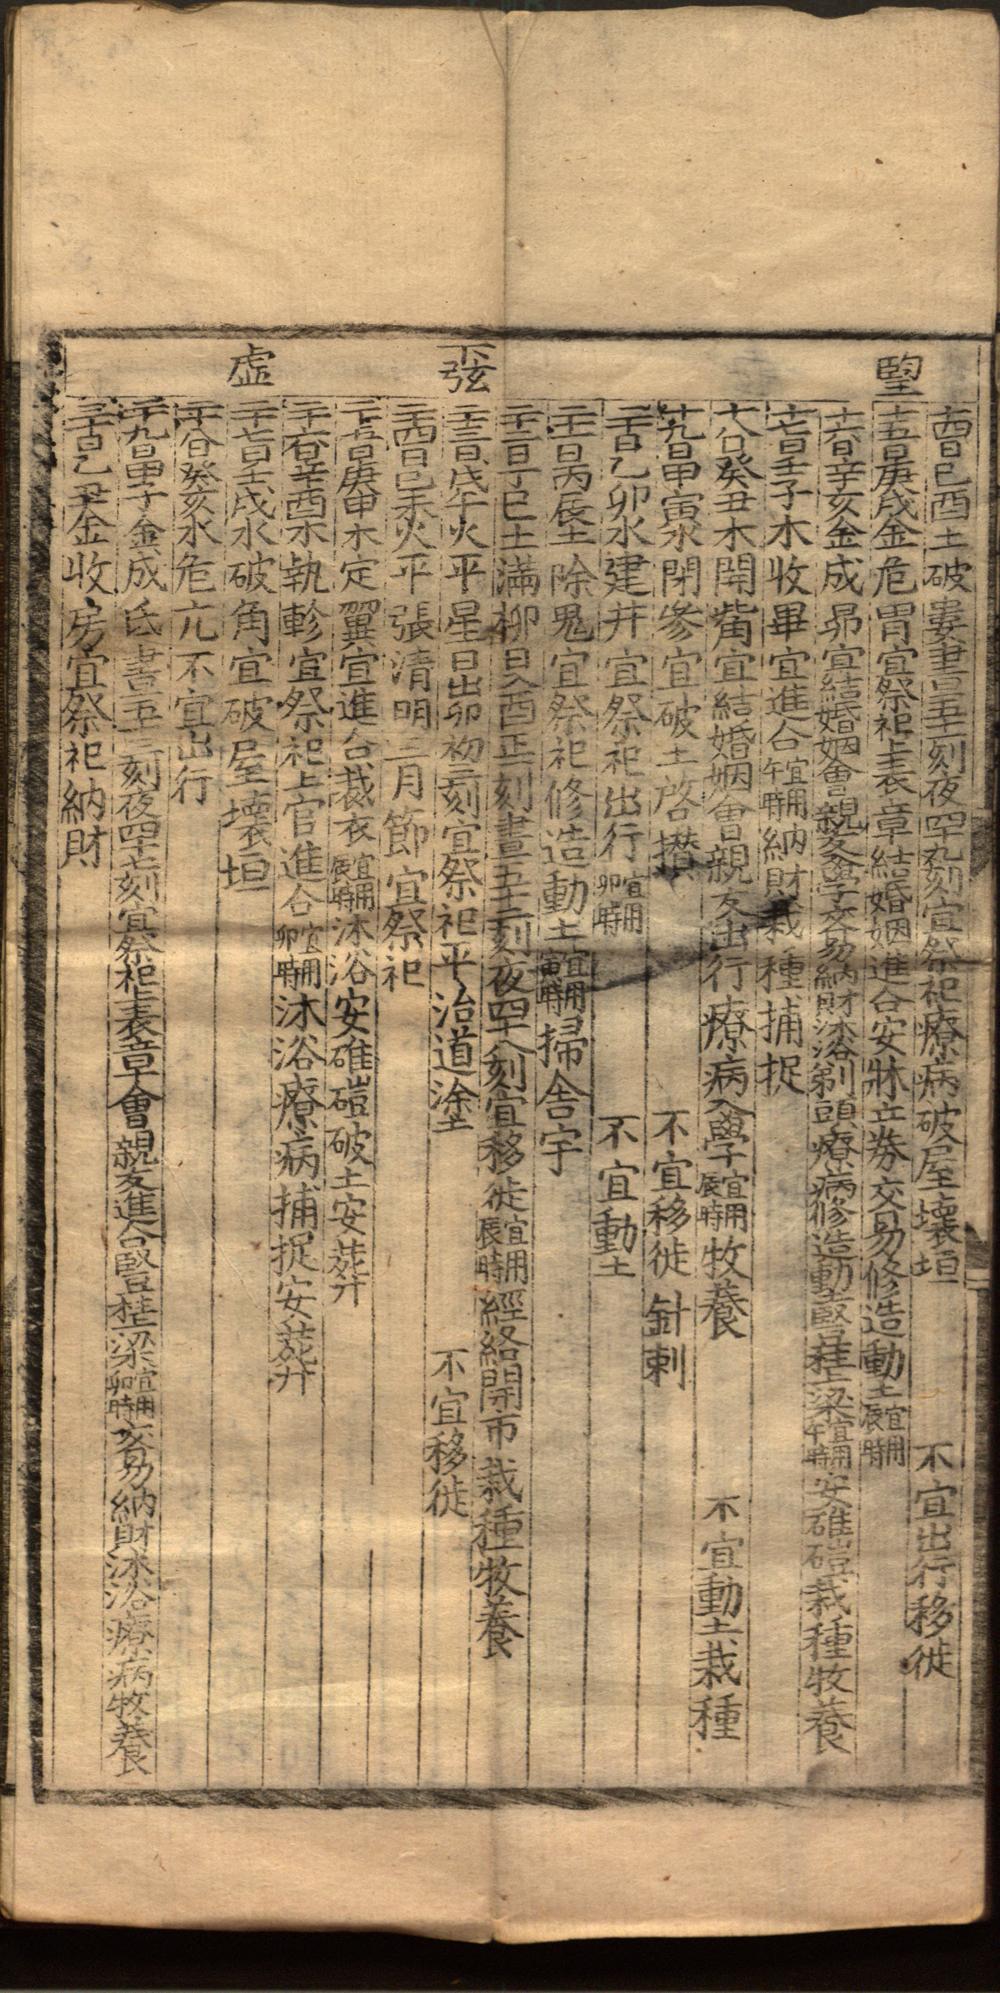 望
下弦
虛
十四日己酉土破婁晝五十一刻夜四十九刻宜祭祀療病破屋壞垣 不宜出行移徙
十五日庚戌金危胃宜祭祀上表章結婚姻進合安牀立券交易修造動土宜用辰時
十六日辛亥金成昴宜結婚姻會親友入學交易納財沐浴剃頭療病修造動土豎柱上梁宜用午時安碓磑栽種牧養
十七日壬子木收畢宜進人口宜用午時納財栽種捕捉
十八日癸丑木開觜宜結婚姻會親友出行療病入學宜用辰時牧養 不宜動土栽種
十九日甲寅水閉參宜破土啓攢 不宜移徙針刺
二十日乙卯水建井宜祭祀出行宜用卯時 不宜動土
二十一日丙辰土除鬼宜祭祀修造動土宜用寅時掃舍宇
二十二日丁巳土滿柳日入酉正刻晝五十二刻夜四十八刻宜移徙宜用辰時經絡開市栽種牧養
二十三日戊午火平星日出卯初三刻宜祭祀平治道塗 不宜移徙
二十四日己未火平張清明三月節宜祭祀
二十五日庚申木定翼宜進人口裁衣宜用辰時沐浴安碓磑破土安葬
二十六日辛酉木執軫宜祭祀上官進人口宜用卯時沐浴療病捕捉安葬
二十七日壬戌水破角宜破屋壞垣
二十八日癸亥水危亢不宜出行
二十九日甲子金成氐晝五十三刻夜四十七刻宜祭祀上表章會親友進人口豎柱上梁宜用卯時交易納財沐浴療病牧養
三十日乙丑金收房宜祭祀納財